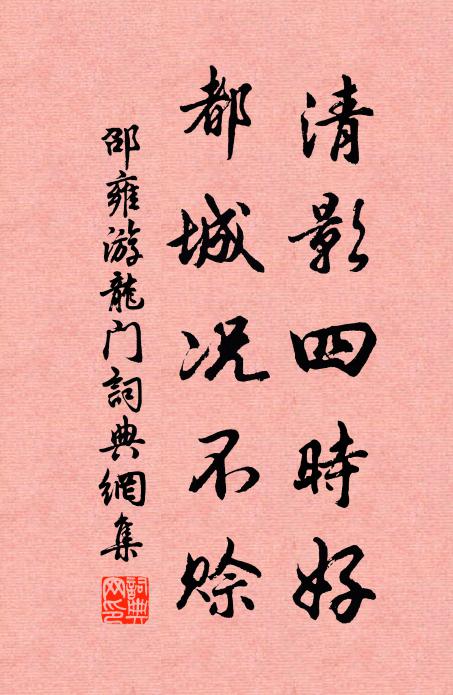 清影四時好
都城况不赊
邵雍游龍门詞典網集
詞典网印